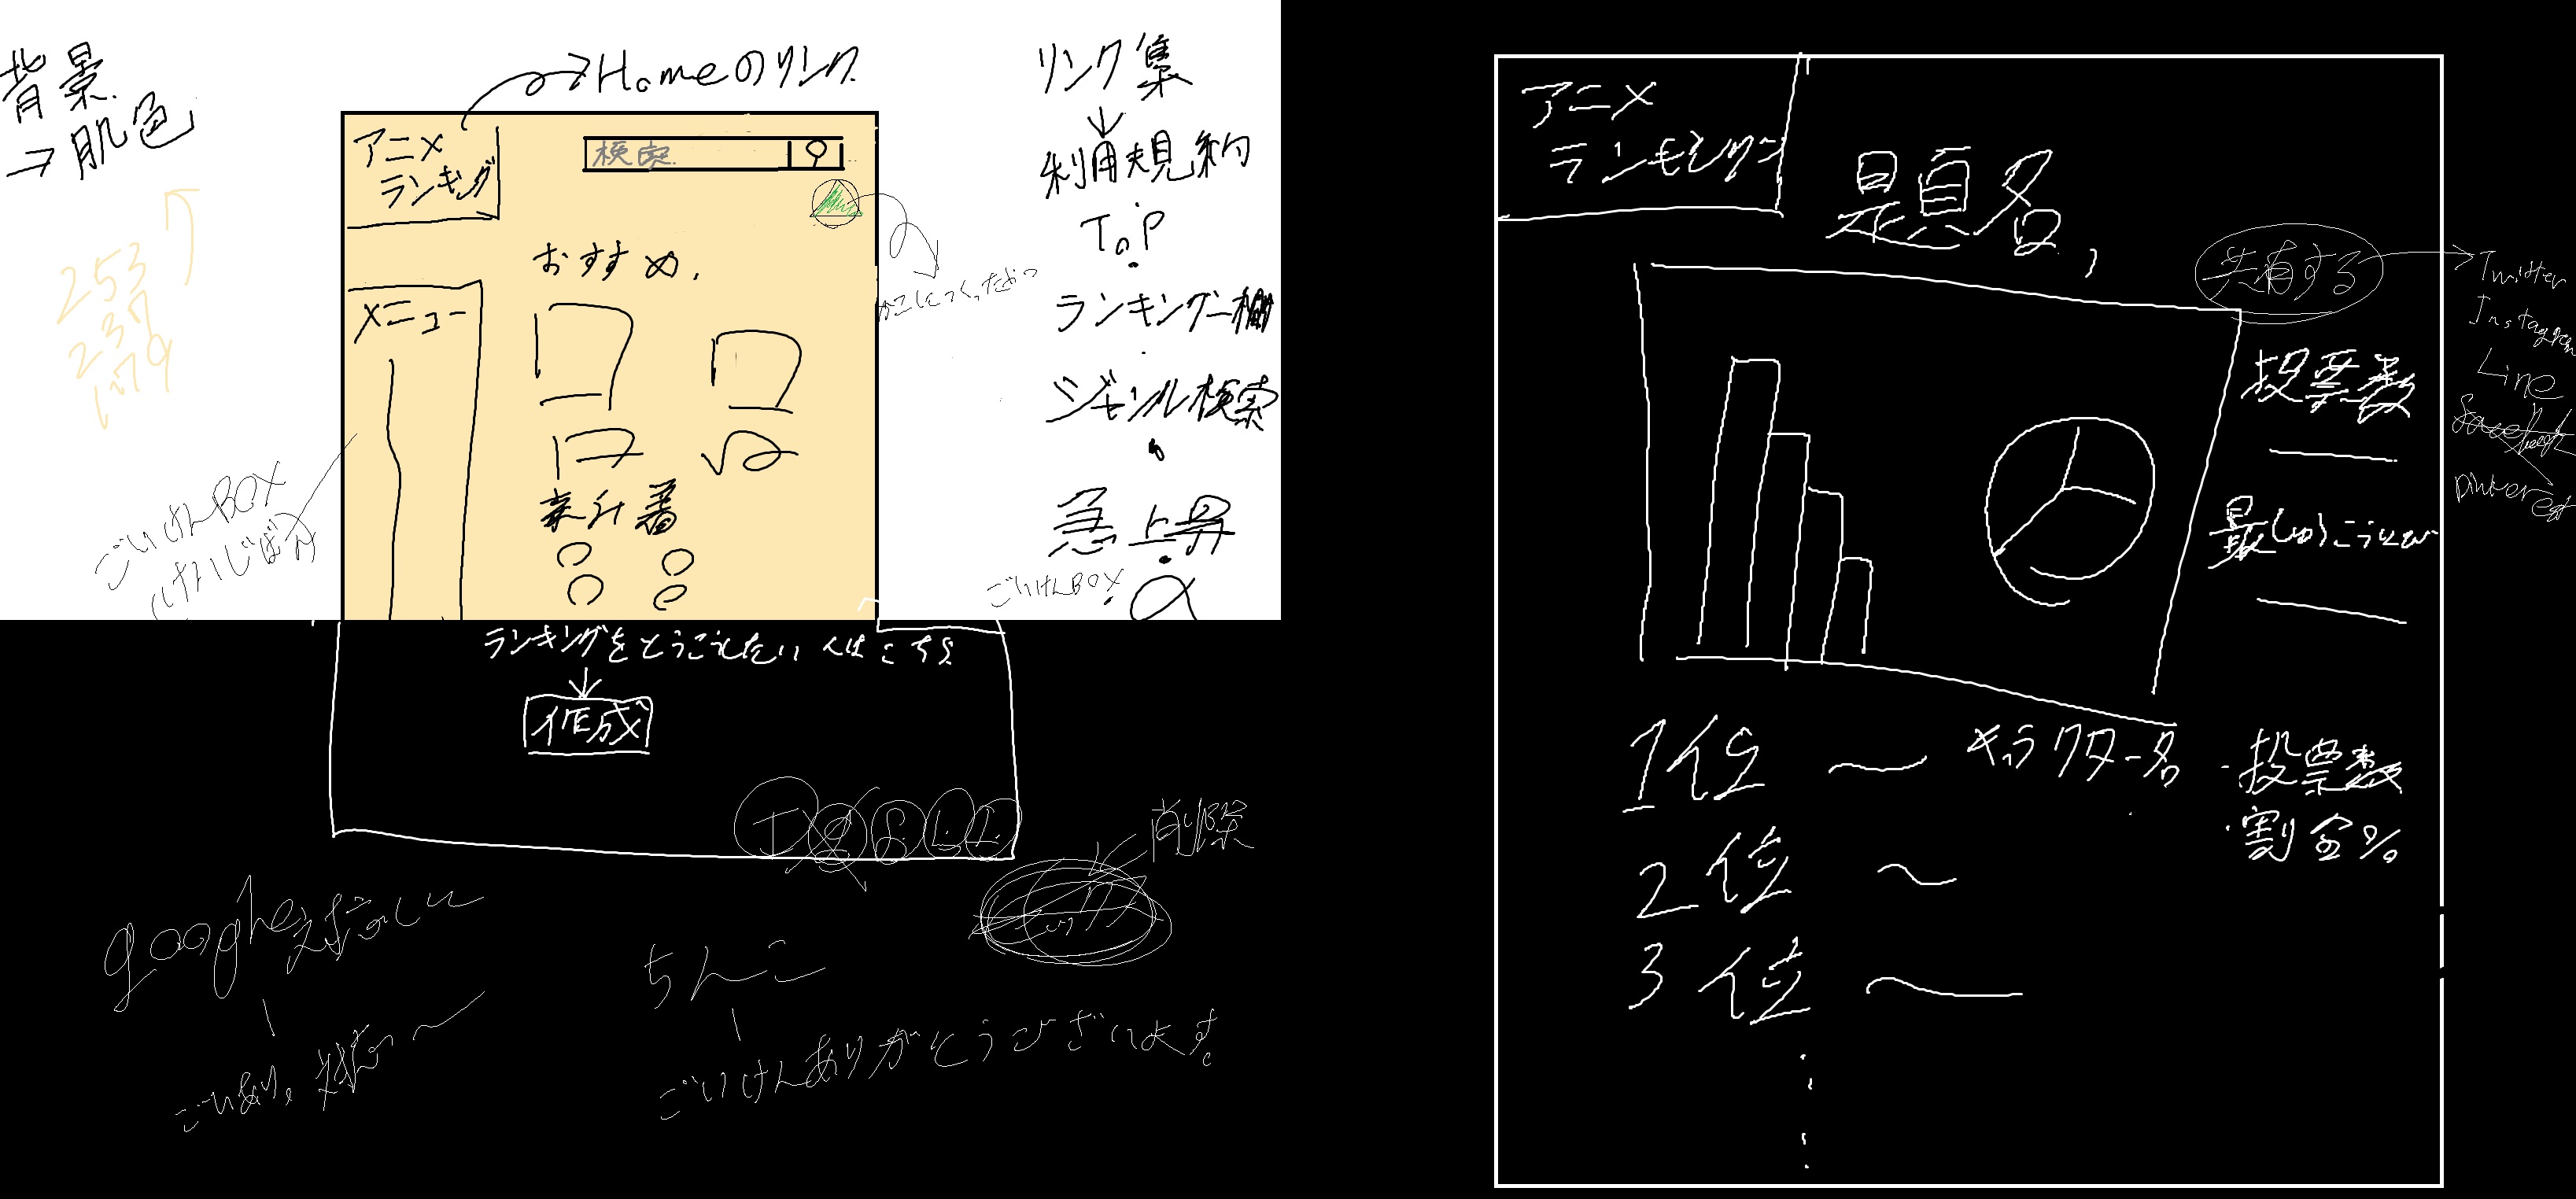 背景
→肌色
253
237
179
Homeのリンク
アニメ
ランキング
検索
おすすめ.
メニュー
新着
ごいけんBOX
けいじばん
かこにつくったやつ
リンク集
↓
利用規約
ToP
ランキング一欄
ジャンル検索
急上昇
ごいけんBOX
ランキングをとうこうしたい人はこちら
↓
作成
T
L
削除
google対応してん
ちんこ
ごいけんありがとうございます。
アニメ
ランキング
題名
共有する
Twitter
Instagram
Line
Pinterest
投票数
最しゅうこうしんび
1位 〜 キャラクター名 ・投票数
・割合%
2位 〜
3位 〜